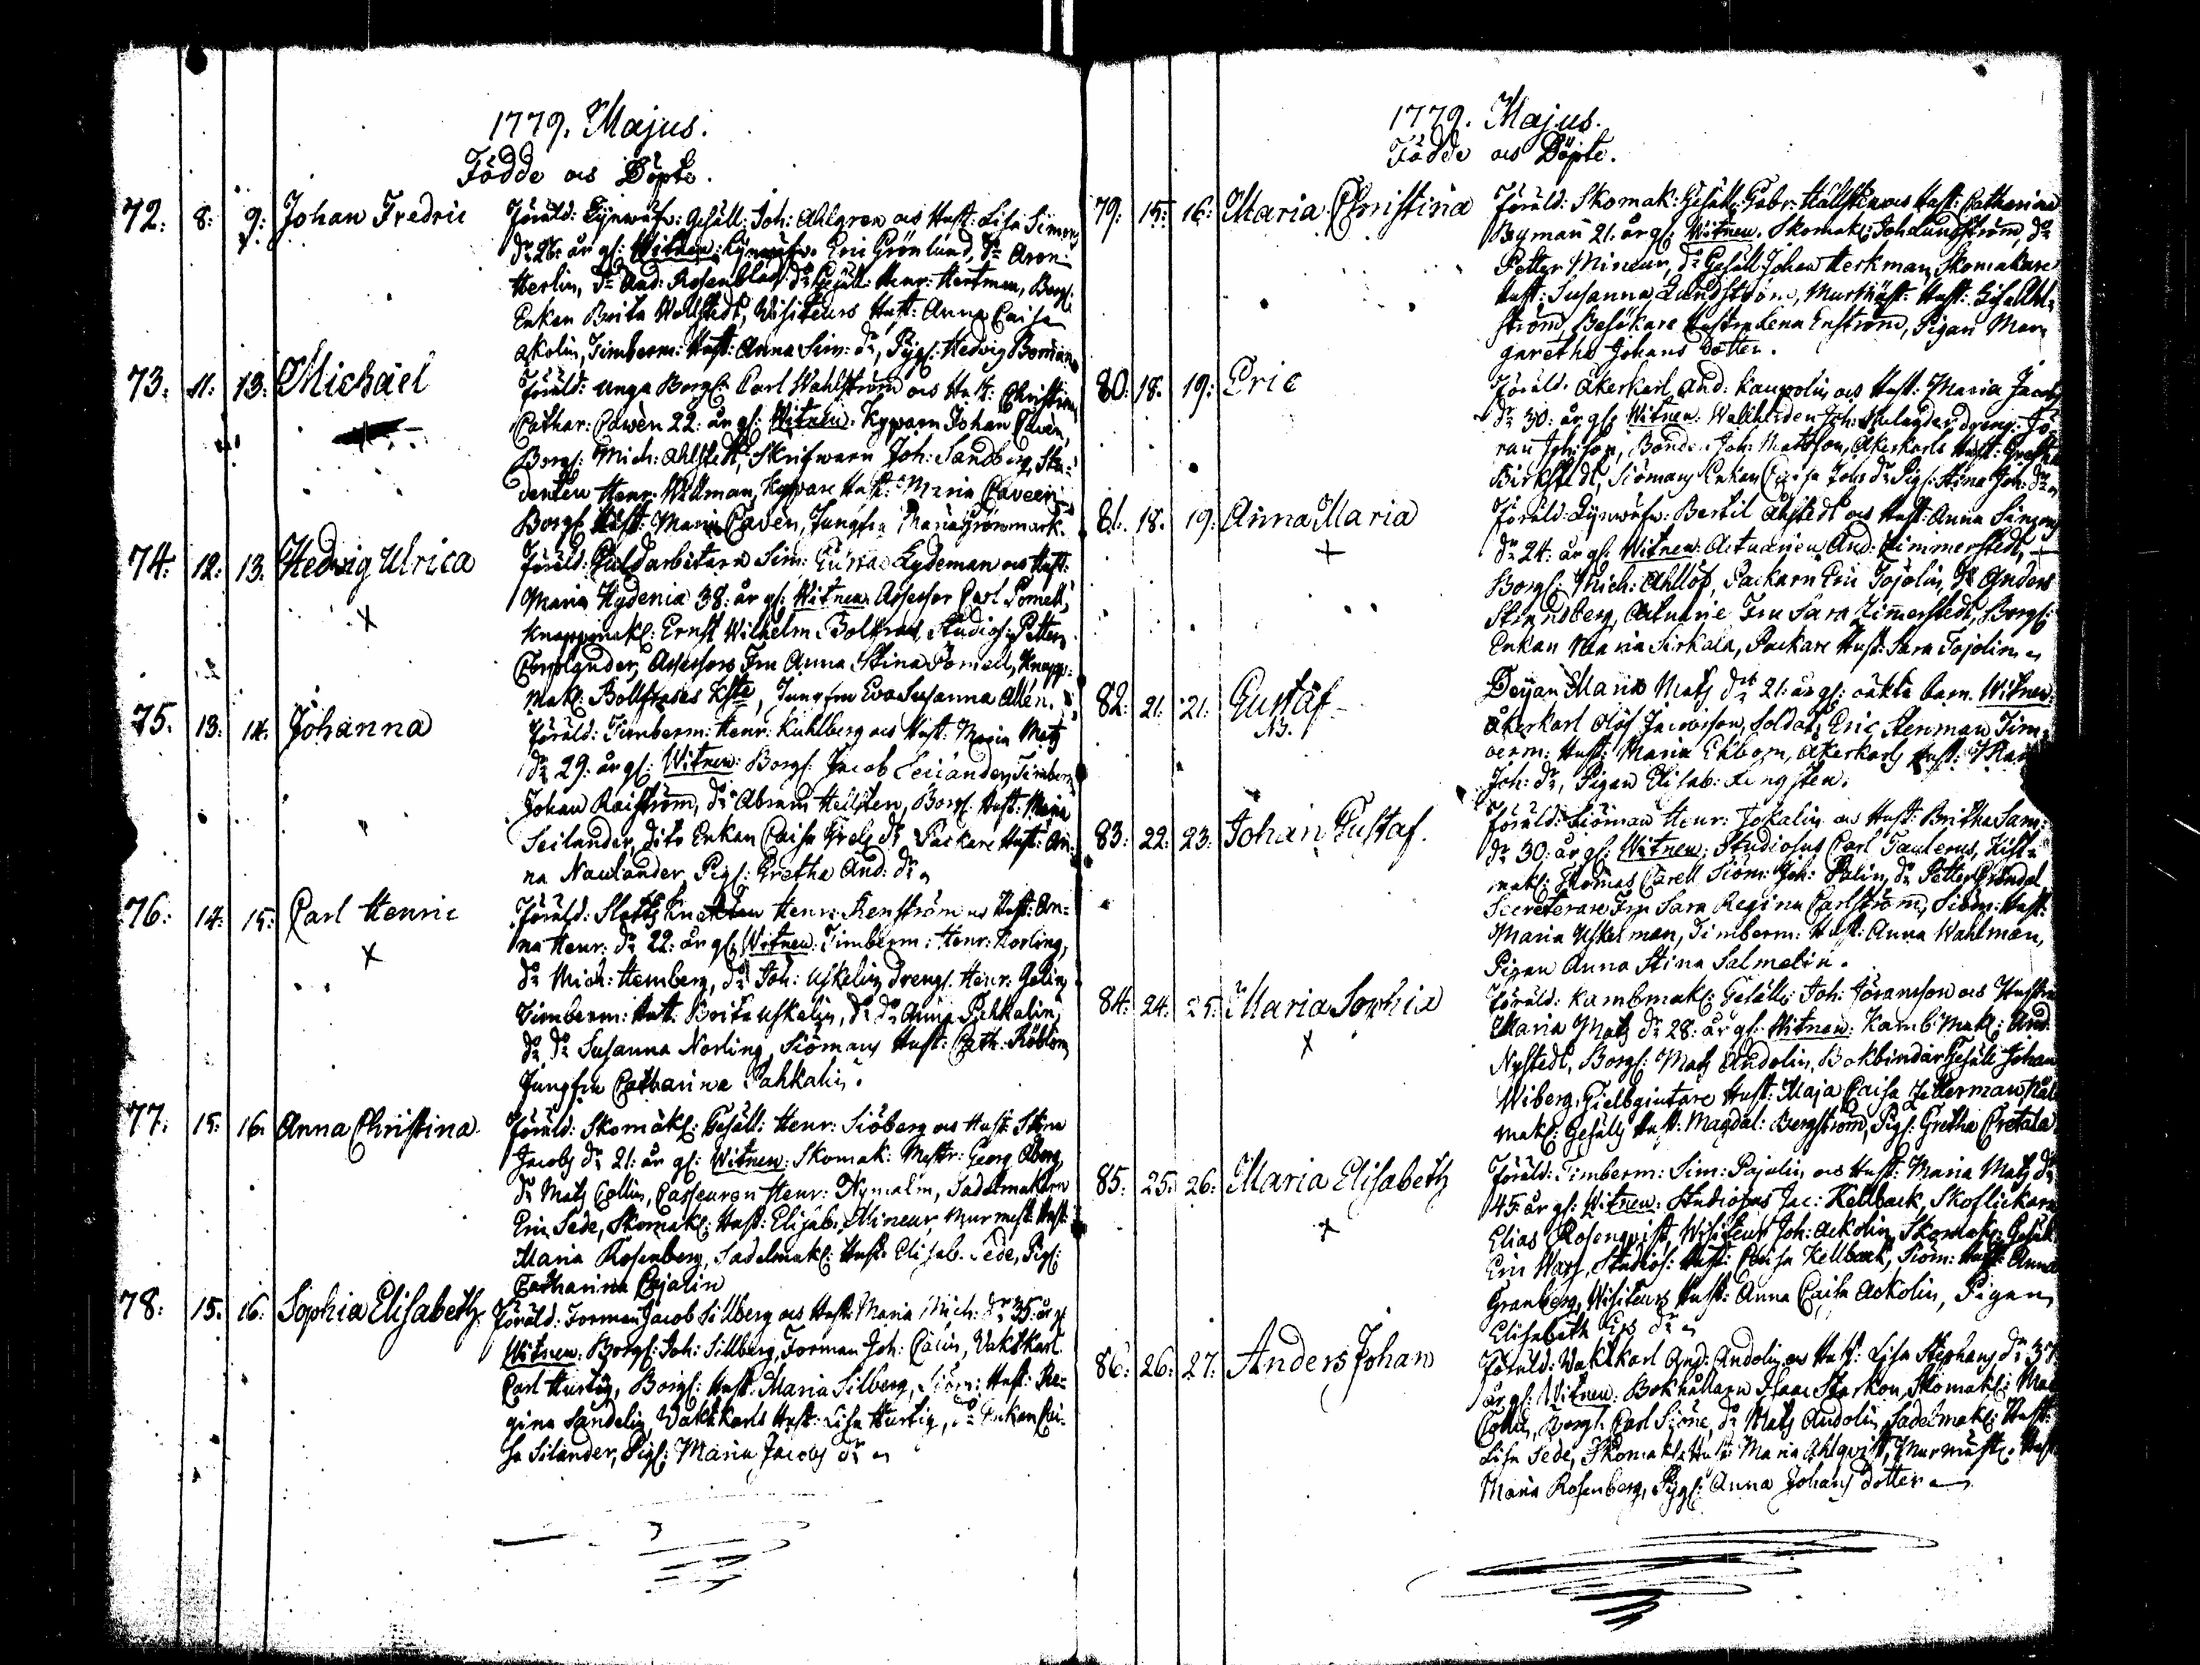 1779. Majus.
Födde os Döpte.
72. 8: 9: Johan Fredric Föräld: Lynwäfv: Gesäll: Joh: Ahlgren os Hust: Lisa Simons
dr 26: år gl: Witnen: Lynwäfv. Eric Grönlund, do Aron
Herlin, do And: Rosenblad do Gesäll: Henr: Hertman, Borgl:
Enkan Brita Wallstedt, Visiteurs Hust: Anna Caisa
Askolin, Timberm: Hust: Anna Sim: dr, Pigs: Hedvig Boman
73. 11: 13: Michaël Föräld: unga Borgl: Carl Wahlström os Hust: Christina
Cathar: Cavén 22: år gl: Witnen: Kyparn Johan Cavén,
Borgl: Mich: Ahlstedt, Skrifwarn Joh: Sandberg, Stu-
denten Henr: Widman, Kypare Hust: Maria Caveen,
Borgl: Hust: Maria Cavén, Jungfru Maria Grönmark.
74. 12: 13. Hedvig Ulrica Föräld: Guldarbetarn Sim: Gustac Lydeman os Hust:
Maria Hydenia 38: år gl: Witnen: Assessor Carl Pomell,
Knappmakl: Ernst Wilhelm Bolt Studios: Petter
Assessors Fru Anna Stina Pomell, Knapp-
makl: Jungfru Eva Susanna Allén.
75. 13. 14. Johanna Föräld: Timberm: Henr: Kuhlberg os Hust: Maria Mats
dr 29: år gl: Witnen: Borgl: Jacob Seilander, Timberm
Johan Raiström, do Abram Hellsten, Borgl: Hust: Maria
Seilander, dito Enkan Caisa Grels dr Packare Hust: An-
na Naulander, Pigs: Gretha And: dr
76: 14: 15: Carl Henric Föräld: Slotts Knekten Henr: Renström os Hust: An-
na Henr: dr 22: år gl: Witnen: Timberm: Henr: Korling,
do Mich: Hemberg, do Joh: Uskelin, drengs: Henr: Gelin,
Timberm: Hust: Brita Uskelin, do do Anna Pahkalin,
do do Susanna Norling, Siömans Hust: Cath: Röblom,
Jungfru Catharina Pahkalin.
77. 15: 16. Anna Christina. Föräld: Skomakl: Gesäll: Henr: Siöberg os Hust: Stina
Jacobs dr 21: år gl: Witnen: Skomak: Mestr: Georg Öberg,
do Mats Collin, Casseuren Henr: Nymalm, Sadelmakarn
Eric Sede, Skomakl: Hust: Elisab: Mineur, Murmest: Hust:
Maria Rosenberg, Sadelmakl: Hust: Elisab: Sede, Pigs:
Catharina Cajalin
78: 15. 16: Sophia Elisabeth. Föräld: Forman Jacob Sillberg os Hust: Maria Mich: dr 35: år gl
Witnen: Borgl: Joh: Sillberg, Forman Joh: Calin, Vaktkarl
Carl Hurtig, Borgl: Hust: Maria Silberg, Siöm: Hust: Re-
gina Sandelin, Vaktkarls Hust: Lisa Hurtig, do Enkan Cai-
sa Silander, Pigs: Maria Jacobs dr
1779. Majus.
Födde os Döpte.
79. 15: 16: Maria Christina Föräld: Skomak: Gesäll: Gabr: Hällsten os Hust: Catharina
Byman 21: år gl: Witnen: Skomakl: Joh Lundström, do
Petter Mineur, do Gesäll Johan Herkman, Skomakare
Hust: Susanna Lundström, Murmäst: Hust:
ström, Besökare Hustru Lena Enström, Pigan Mar-
garetha Johans Dotter.
80. 18. 19: Eric Föräld: Åkerkarl And: Kaupolin os Hust: Maria Jacobs
dr 30: år gl: Witnen: Joh: dreng: Jö-
ran Joh: son, Bonde: Joh: Matsson, Åkerkarls Hust: Gretha
Birkstedt, Siömans Enkan Caisa Joh: dr Pigs: Stina Joh: dr
81. 18. 19: Anna Maria Föräld: Lynwäfv: Bertil Åhstedt os Hust: Anna Simons
dr 24: år gl: Witnen: Actuarien And: Zimmerstedt,
Borgl: Mich: Ahllöf, Packarn Eric Tojolin, do Anders
Strandberg, Actuarie Fru Sara Zimmerstedt, Borgl:
Enkan Maria Sirkala, Packare Hust: Sara Tojolin
82: 21. 21: Gustaf NB. Deijan Maria Mats dr 21: år gl: oäkta barn. Witnen:
Åkerkarl Olof Jacobsson, Soldat: Eric Stenman, Tim-
berm: Hust: Maria Ekbom, Åkerkarls Hust: Mar
Joh: dr, Pigan Elisab: Lengsten.
83: 22: 23: Johan Gustaf. Föräld: Siöman Henr: Jokalin os Hust: Britha Sam:
dr 30: år gl: Witnen: Studiosus Carl Taulerus, Kist-
makl: Thomas Carell Siöm: Joh: Palin, do Petter Gröndal
Secreterare Fru Sara Regina Carlström, Siöm: Hust:
Maria Uskelman, Timberm: Hust: Anna Wahlman,
Pigan Anna Stina Salmelin.
84: 24: 25: Maria Sophia Föräld: Kambmakl: Gesäll: Joh: Jöransson os Hustru
Maria Mats dr 28: år gl: Witnen: Kamb Makl: And:
Nystedt, Borgl: Mats Andolin, Bokbindar Gesäll Johan
Wiberg, Gielbgiutare Hust: Maja Caisa Zellerman,
makl: Gesälls Hust: Magdal: Bergström, Pigs: Gretha Cretala
85: 25: 26: Maria Elisabeth Föräld: Timberm: Sim: Pajulin os Hust: Maria Mats dr
45: år gl: Witnen: Studiosus Jac: Kellback, Skoflickarn
Elias Rosenqvist, Visiteur Joh: Askolin, Skomakl: Gesäll
Eric Wass, Studios: Hust: Caisa Kellback, Siöm: Hust: Anna
Granberg, Visiteurs Hust: Anna Caisa Askolin, Pigan
Elisabeth dr
86: 26: 27: Anders Johan Föräld: Vaktkarl And: Andolin os Hust: Lisa Stephans dr 37
år gl: Witnen: Bokhållarn Isaac Starkou, Skomakl: Mats
Collin, Borgl: Carl Siöne, do Mats Andolin, Sadelmakl: Hust:
Lisa Sede, Skomakl: Hust: Maria Ahlqvist, Murmäst: Hust
Maria Rosenberg, Pigs: Anna Johans dotter